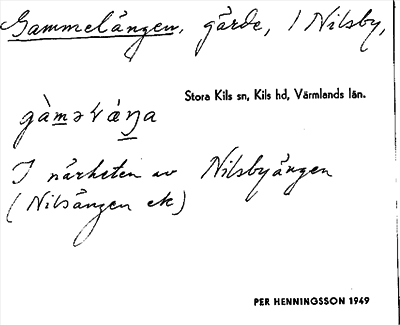 Gammelängen, gärde, i Nilsby,
Stora Kils sn, Kils hd, Värmlands län.
I närheten av Nilsbyängen
(Nilsängen ek)
PER HENNINGSSON 1949